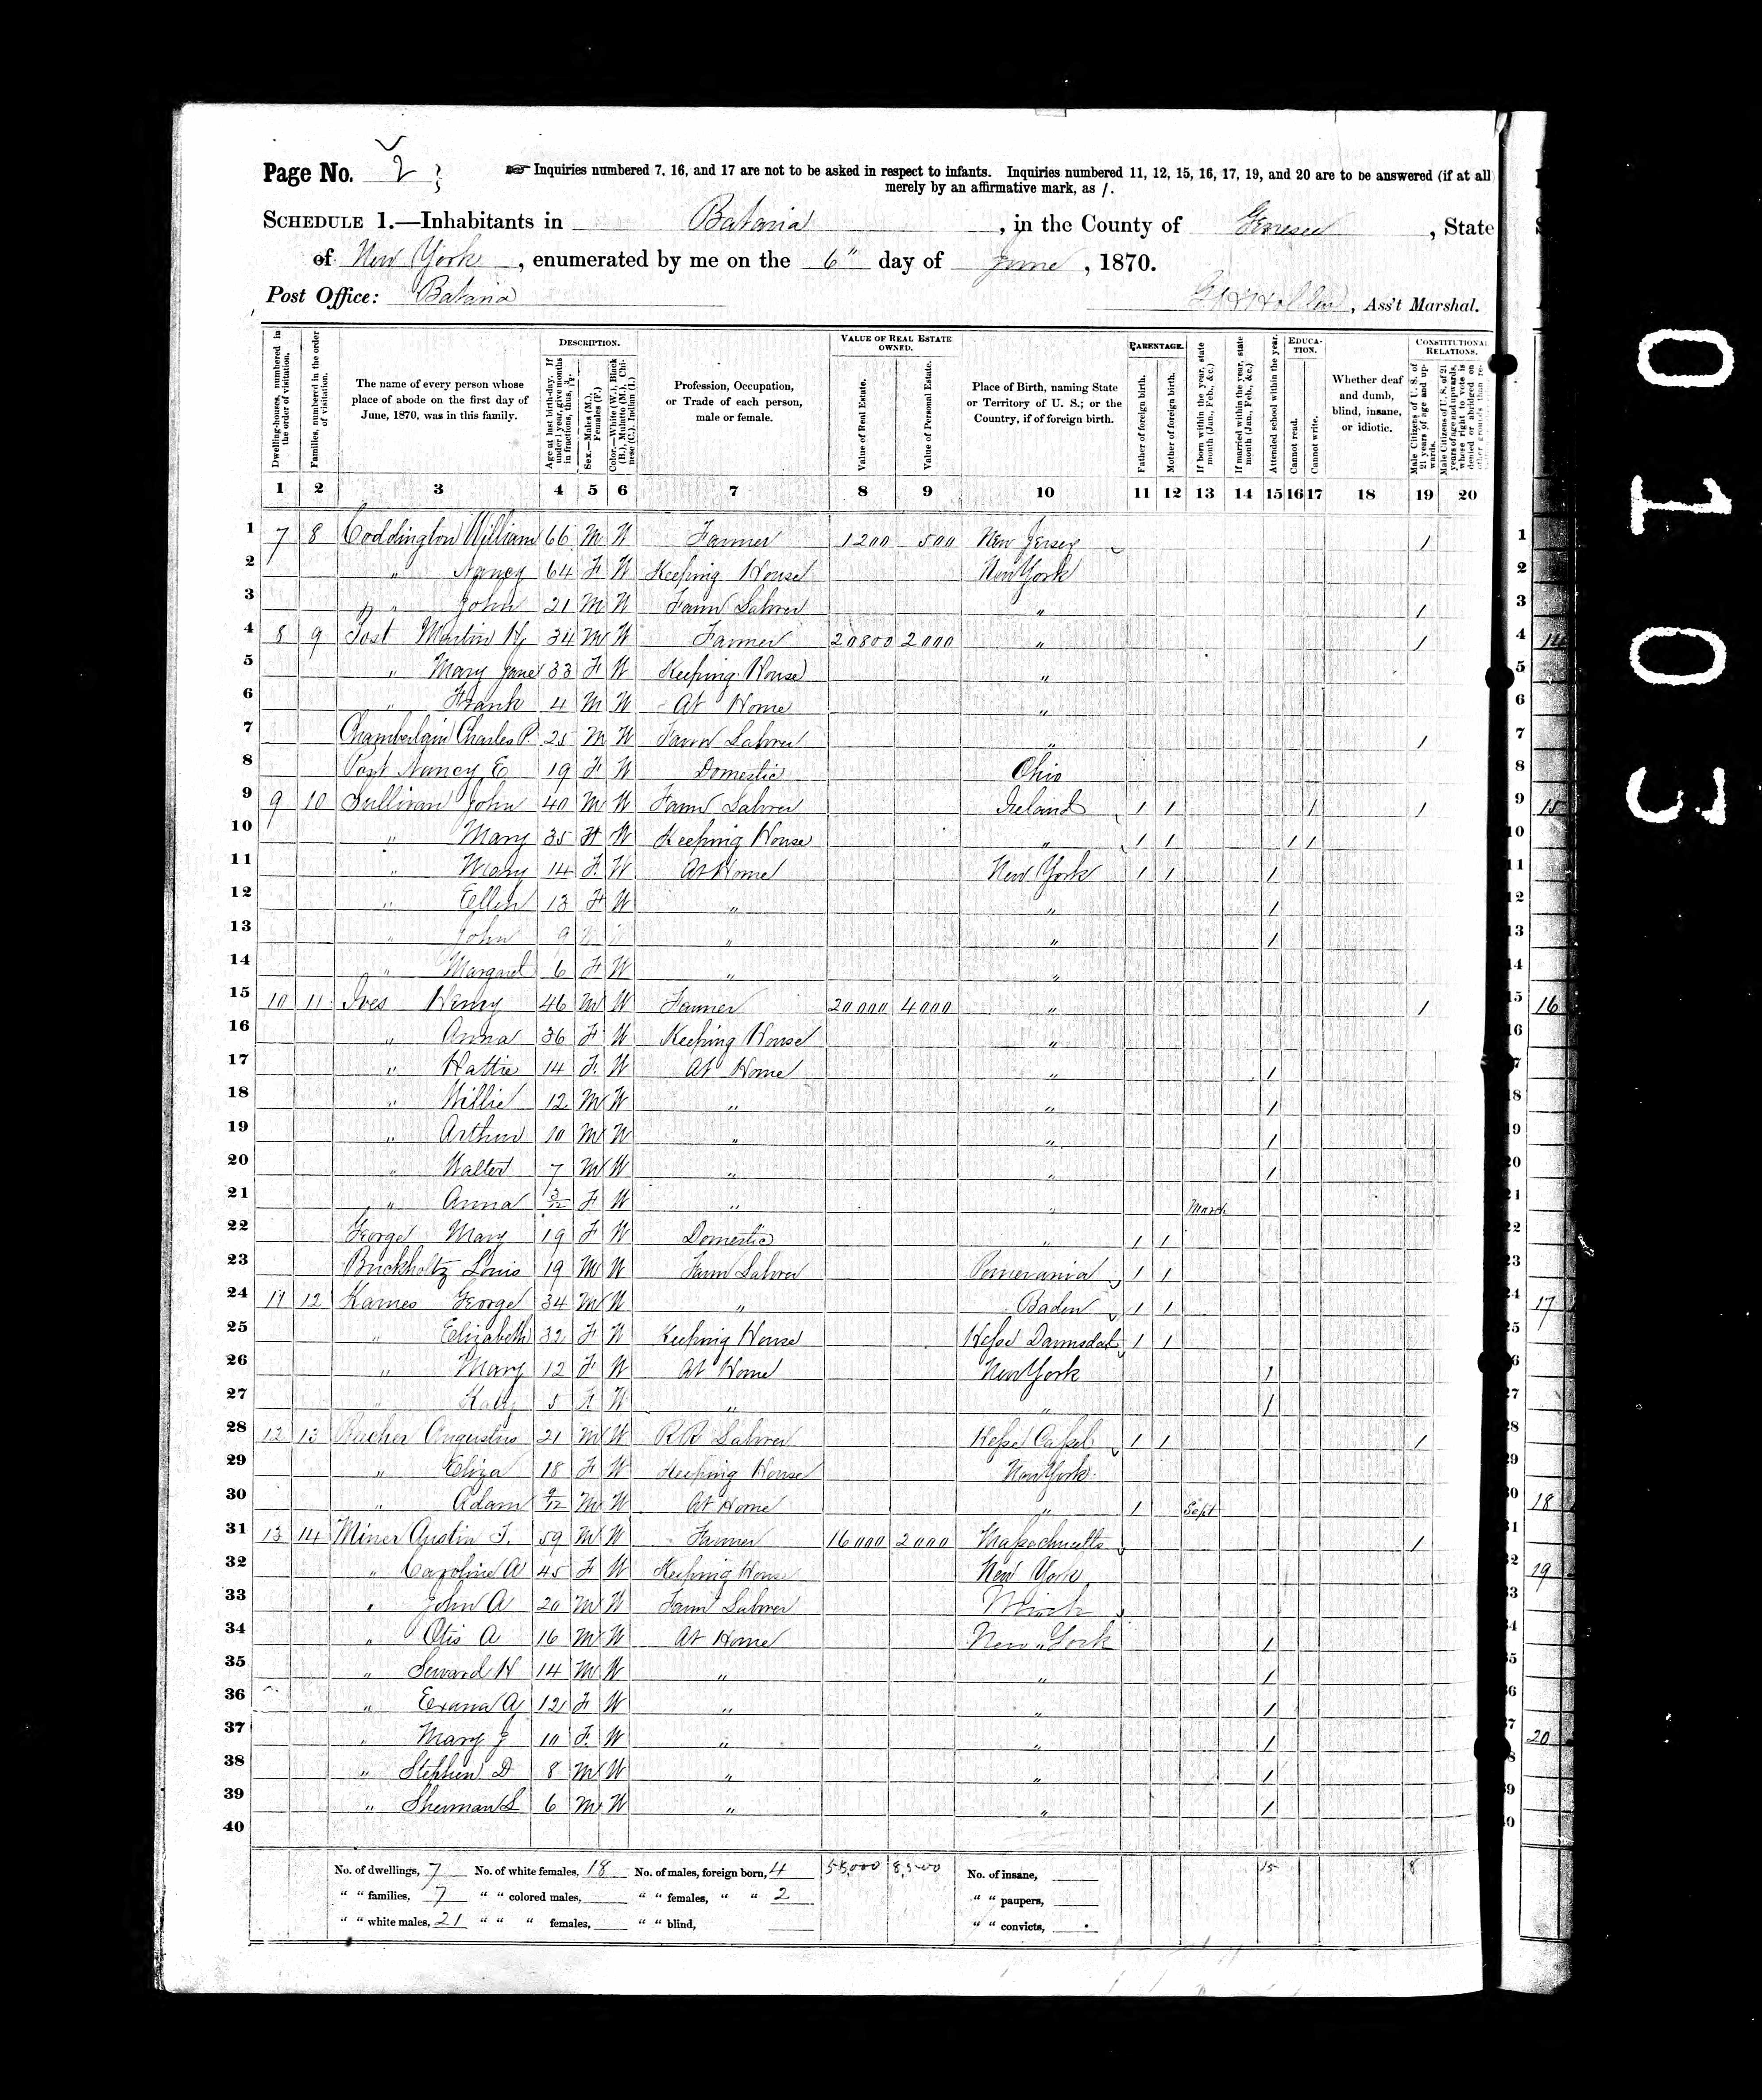 Page No. 2
☞ Inquiries numbered 7, 16, and 17 are not to be asked in respect to infants. Inquiries numbered 11, 12, 15, 16, 17, 19, and 20 are to be answered (if at all)
merely by an affirmative mark, as /.
SCHEDULE 1.—Inhabitants in Batavia, in the County of Genesee, State
of New York, enumerated by me on the 6" day of June, 1870.
Post Office: Batavia
, Ass't Marshal.
Dwelling-houses, numbered in the order of visitation.
Families, numbered in the order of visitation.
The name of every person whose place of abode on the first day of June, 1870, was in this family.
DESCRIPTION.
Age at last birth-day. If under 1 year, give months in fractions, thus, 3/12.
Sex.—Males (M.), Females (F.)
Color.—White (W.), Black (B.), Mulatto (M.), Chinese (C.), Indian (I.)
Profession, Occupation, or Trade of each person, male or female.
VALUE OF REAL ESTATE OWNED.
Value of Real Estate.
Value of Personal Estate.
Place of Birth, naming State or Territory of U. S.; or the Country, if of foreign birth.
PARENTAGE.
Father of foreign birth.
Mother of foreign birth.
If born within the year, state month (Jan., Feb., &c.)
If married within the year, state month (Jan., Feb., &c.)
Attended school within the year.
EDUCATION.
Cannot read.
Cannot write.
Whether deaf and dumb, blind, insane, or idiotic.
CONSTITUTIONAL RELATIONS.
Male Citizens of U. S. of 21 years of age and upwards.
Male Citizens of U. S. of 21 years of age and upwards, where right to vote is denied or abridged on other grounds than re-
1 2 3 4 5 6 7 8 9 10 11 12 13 14 15 16 17 18 19 20
1 7 8 Coddington William 66 M W Farmer 1200 500 New Jersey /
2 " Nancy 64 F W Keeping House New York
3 " John 21 M W Farm Laborer " /
4 8 9 Post Martin H 34 M W Farmer 20800 2000 " /
5 " Mary Jane 33 F W Keeping House "
6 " Frank 4 M W At Home "
7 Chamberlain Charles P. 25 M W Farm Laborer " /
8 Post Nancy E 19 F W Domestic Ohio
9 9 10 Sullivan John 40 M W Farm Laborer Ireland / / / /
10 " Mary 35 F W Keeping House " / / / /
11 " Mary 14 F W At Home New York / / /
12 " Ellen 13 F W " " /
13 " John 9 M W " " /
14 " Margaret 6 F W " "
15 10 11 Ives Henry 46 M W Farmer 20000 4000 " /
16 " Anna 36 F W Keeping House "
17 " Hattie 14 F W At Home " /
18 " Willie 12 M W " " /
19 " Arthur 10 M W " " /
20 " Walter 7 M W " " /
21 " Anna 3/12 F W " " March
22 George Mary 19 F W Domestic " / /
23 Buckholtz Louis 19 M W Farm Laborer Pomerania / /
24 11 12 Karnes George 34 M W " Baden / /
25 " Elizabeth 32 F W Keeping House Hesse Darmsdat / /
26 " Mary 12 F W At Home New York /
27 " Katy 5 F W " " /
28 12 13 Beecher Augustus 21 M W R R Laborer Hesse Cassel / / /
29 " Eliza 18 F W Keeping House New York
30 " Adam 9/12 M W At Home " / Sept
31 13 14 Miner Austin F. 59 M W Farmer 16000 2000 Massachusetts /
32 " Caroline A 45 F W Keeping House New York
33 " John A 20 M W Farm Laborer Mich
34 " Otis A 16 M W At Home New York /
35 " Seward H 14 M W " " /
36 " 12 F W " " /
37 " Mary J 10 F W " " /
38 " Stephen D 8 M W " " /
39 " Sherman S 6 M W " " /
40
No. of dwellings, 7 No. of white females, 18 No. of males, foreign born, 4 58,000 8,500 No. of insane, 15 8
" " families, 7 " " colored males, " " females, " " 2 " " paupers,
" " white males, 21 " " " females, " " blind, " " convicts,
0103